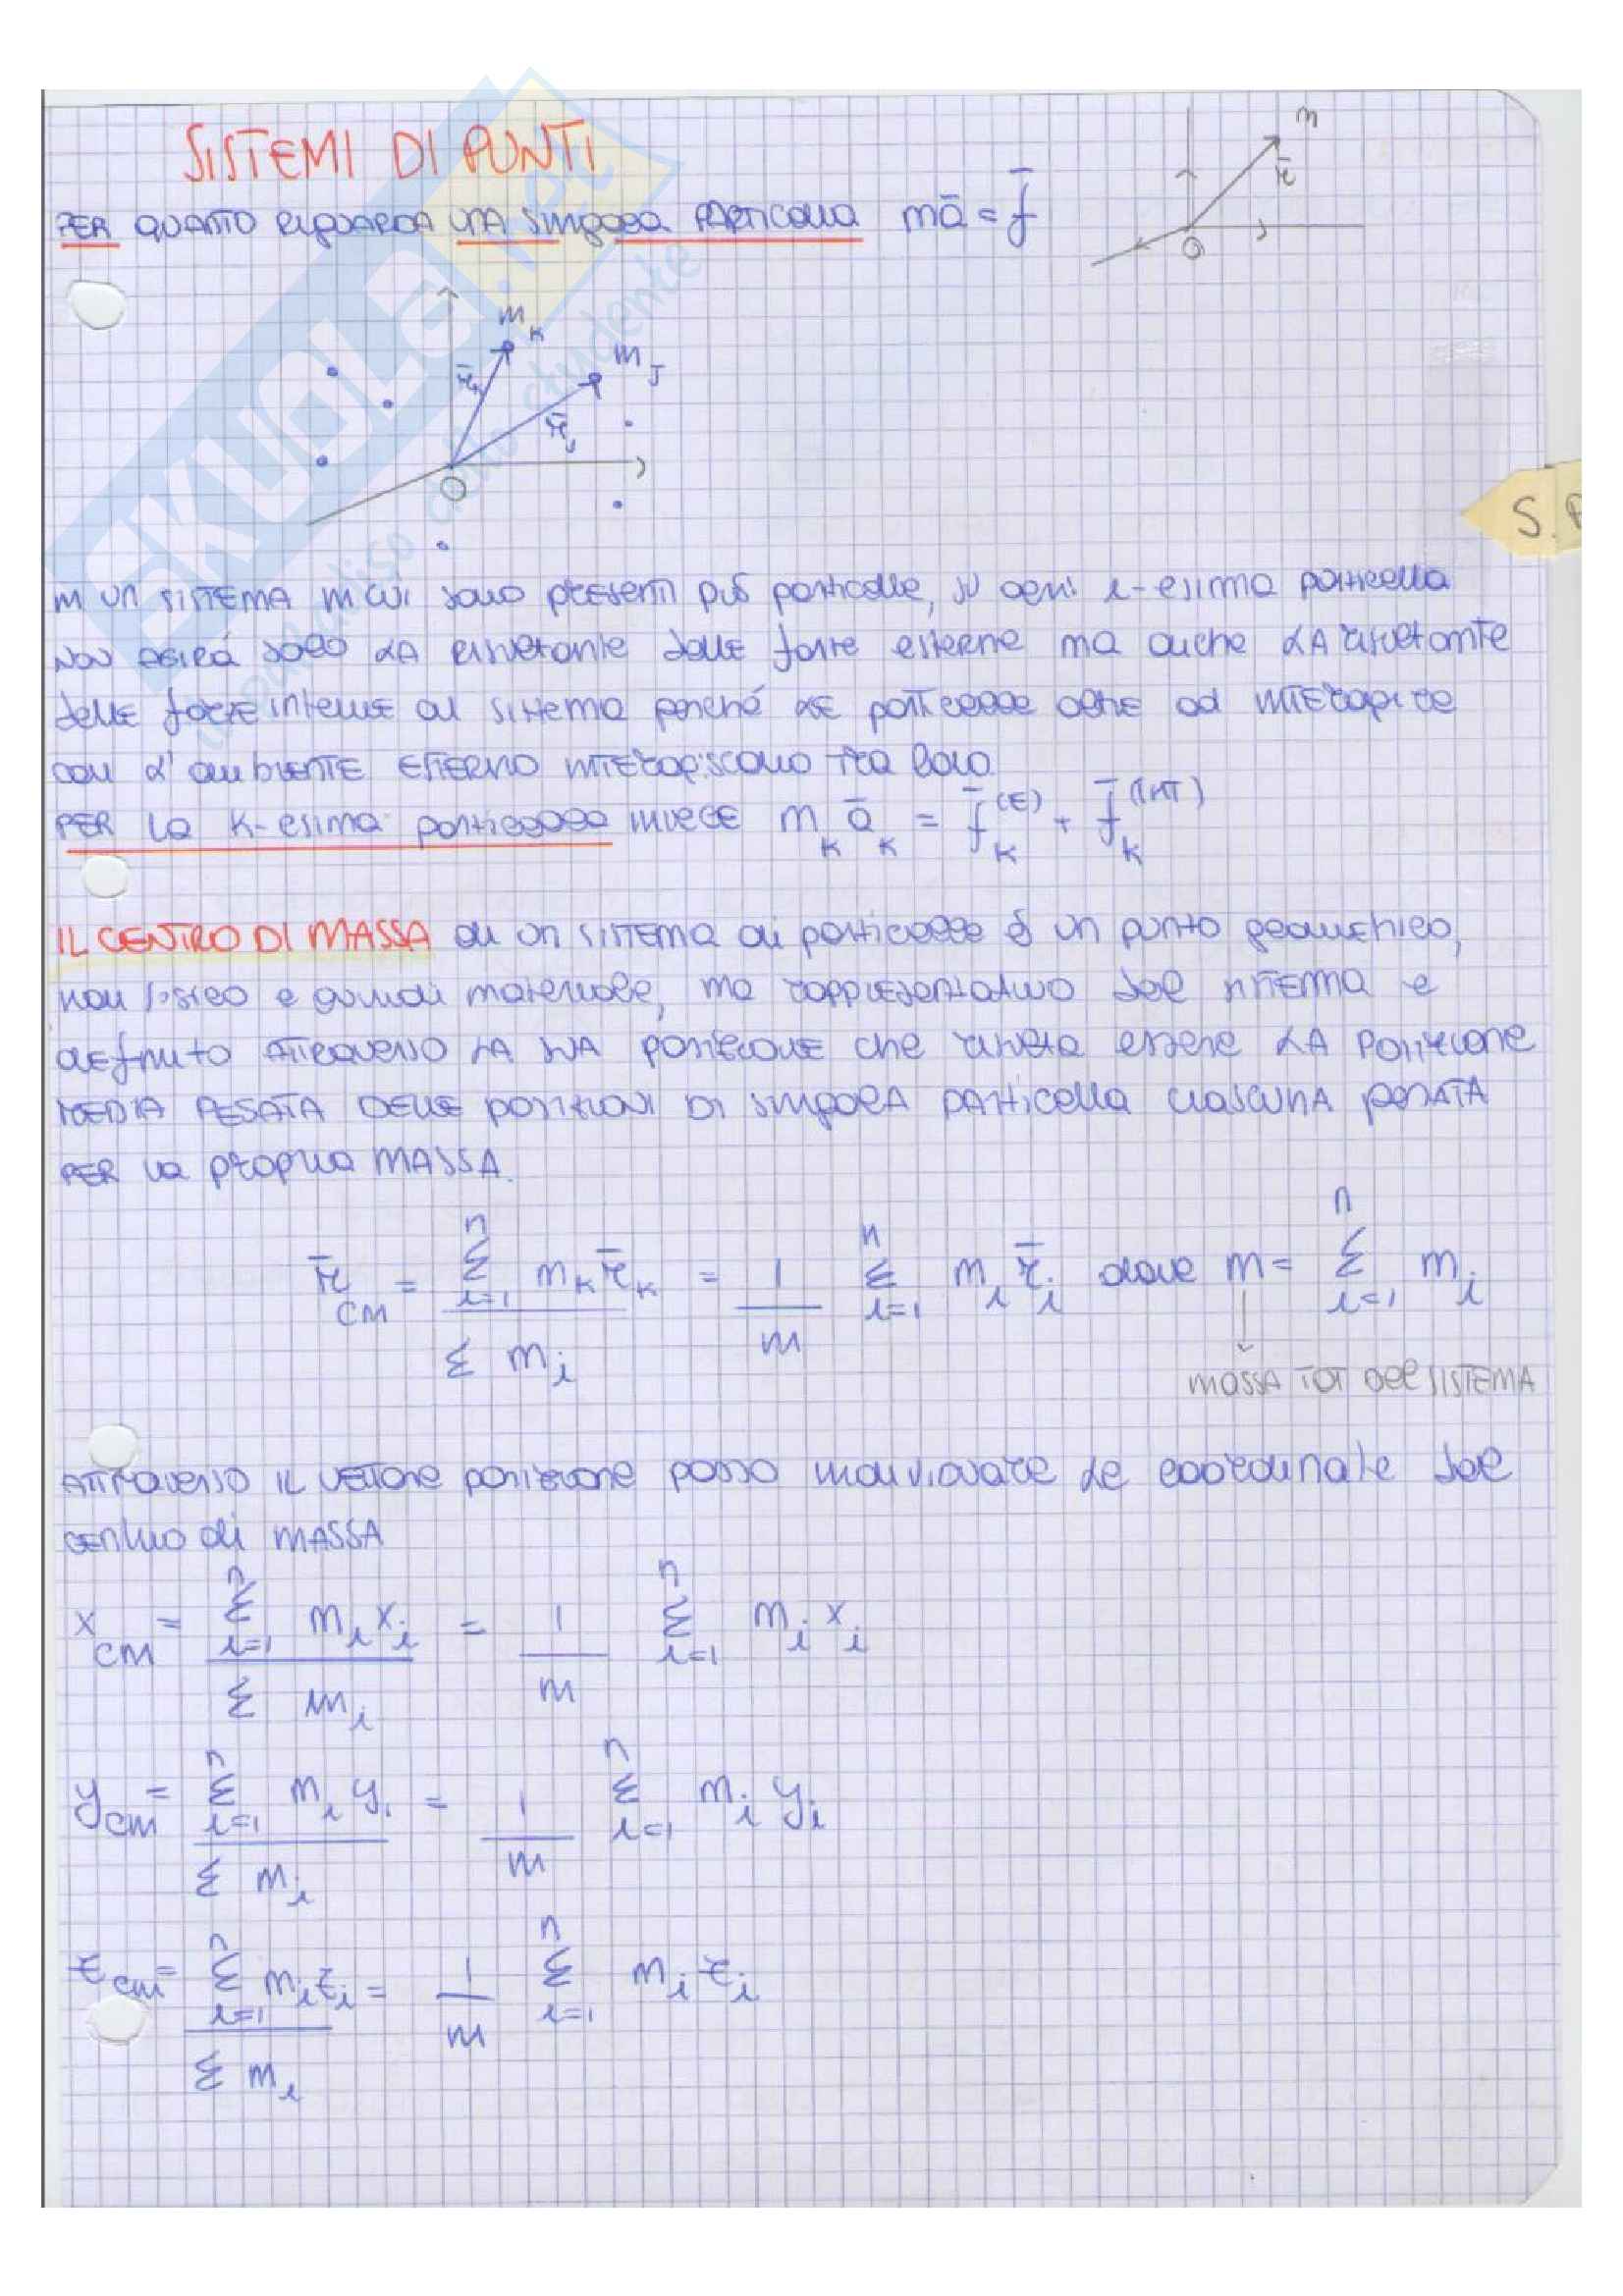 SISTEMI DI PUNTI
PER QUANTO RIGUARDA UNA SINGOLA PARTICELLA mā = f̄
m
r̄
O
m_K
m_J
r̄_K
r̄_J
O
S.P
IN UN SISTEMA IN CUI sono presenti più particelle, su ogni i-esima particella
NON AGIRÀ solo LA RISULTANTE delle forze esterne ma anche LA risultante
delle forze interne al sistema perché LE particelle oltre ad INTERAGIRE
con l'ambiente ESTERNO INTERAGISCONO tra loro
PER la K-esima particella invece m_K ā_K = f̄_K^(E) + f̄_K^(INT)
IL CENTRO DI MASSA di un SISTEMA di particelle è un punto geometrico,
non fisico e quindi materiale, ma rappresentativo del SISTEMA e
definito ATTRAVERSO LA SUA POSIZIONE che risulta essere LA POSIZIONE
MEDIA PESATA DELLE POSIZIONI DI SINGOLA PARTICELLA CIASCUNA PESATA
PER la propria MASSA.
r̄_CM = Σ_{i=1}^{n} m_K r̄_K / Σ m_i = 1/m Σ_{i=1}^{n} m_i r̄_i dove m = Σ_{i=1}^{n} m_i
MASSA TOT DEL SISTEMA
ATTRAVERSO IL VETTORE posizione posso individuare le coordinate del
centro di MASSA
x_CM = Σ_{i=1}^{n} m_i x_i / Σ m_i = 1/m Σ_{i=1}^{n} m_i x_i
y_CM = Σ_{i=1}^{n} m_i y_i / Σ m_i = 1/m Σ_{i=1}^{n} m_i y_i
z_CM = Σ_{i=1}^{n} m_i z_i / Σ m_i = 1/m Σ_{i=1}^{n} m_i z_i
SKUOLA.net